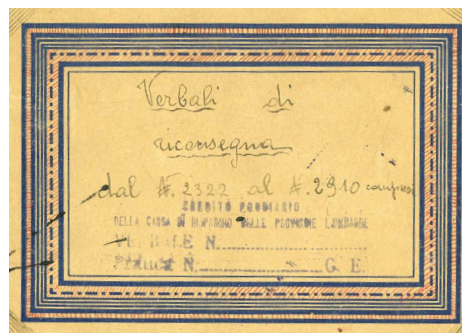 Verbali di
riconsegna
dal N. 2322 al N. 2910 compresi
CREDITO FONDIARIO
DELLA CASSA DI RISPARMIO DELLE PROVINCIE LOMBARDE
VERBALE N.
PRATICA N. G. E.